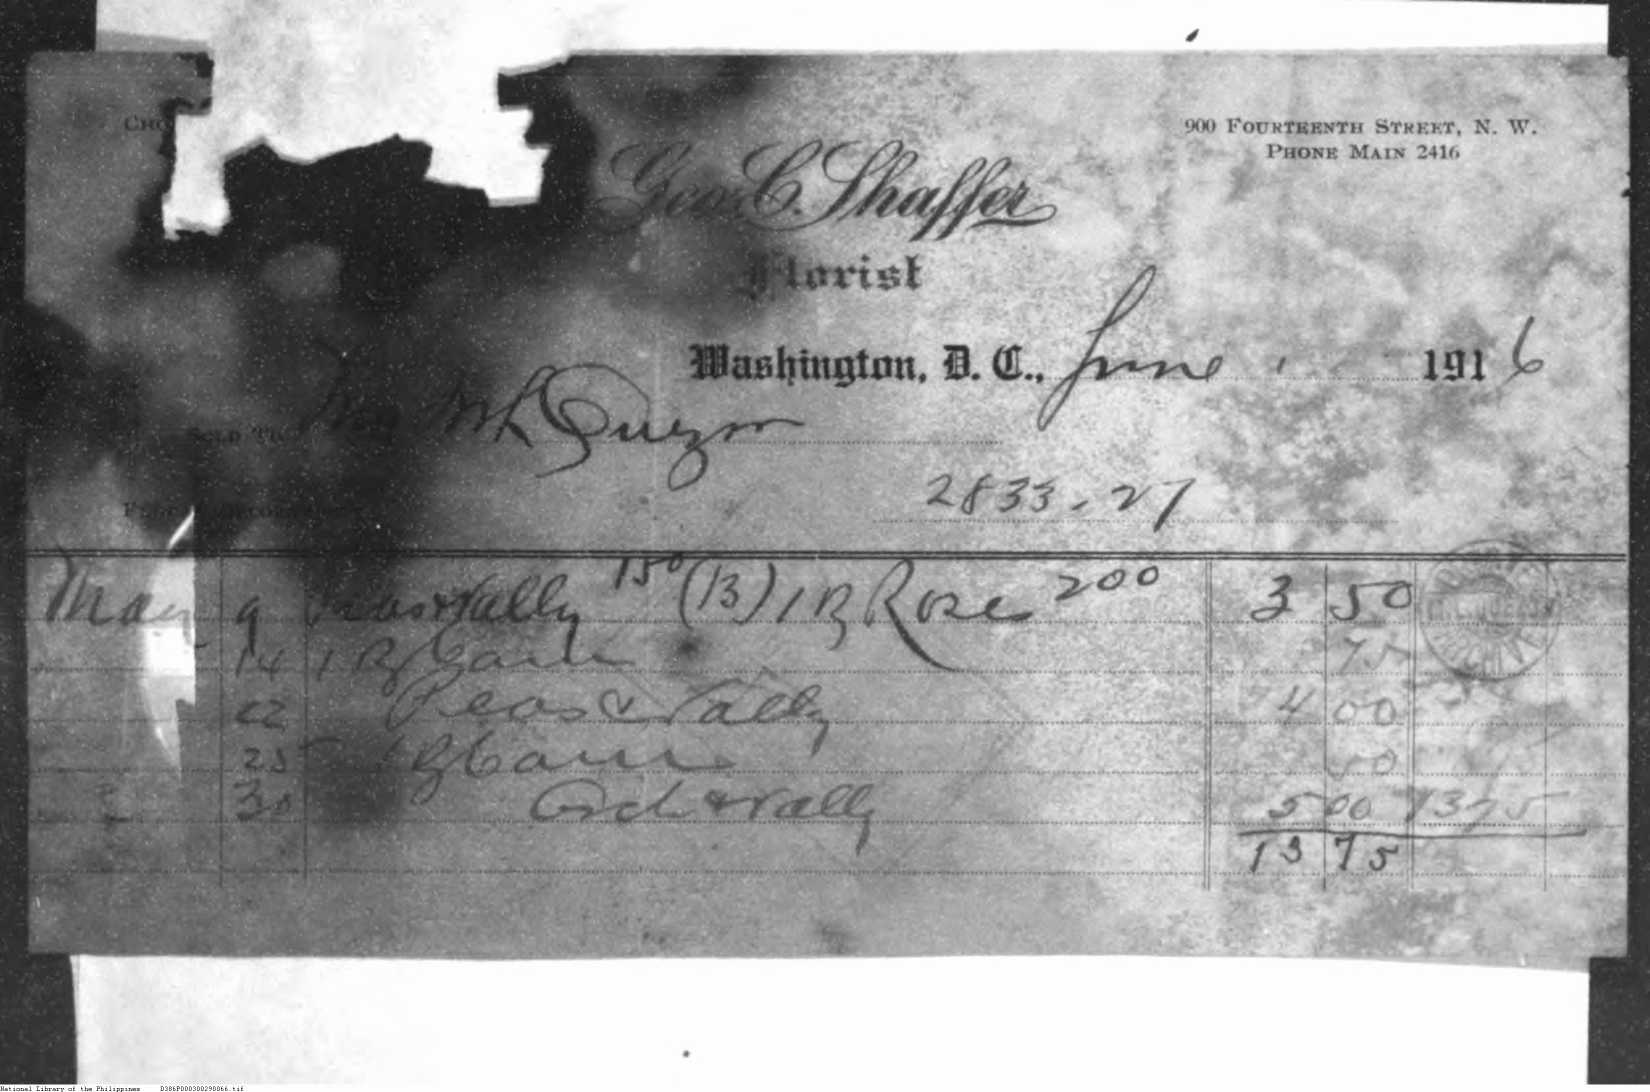 900 FOURTEENTH STREET, N. W.
PHONE MAIN 2416
Geo. C. Shaffer
Florist
Washington, D. C., June 1916
SOLD TO Mr M L Quezon
2833-27
May 9 Peas & Vally 150 (13) 1 B Rose 200 3 50
14 1 B 75
22 Peas & Vally 4 00
25 1 B 50
30 Orch & Vally 5 00 1375
13 75
National Library of the Philippines D386P000300290066.tif